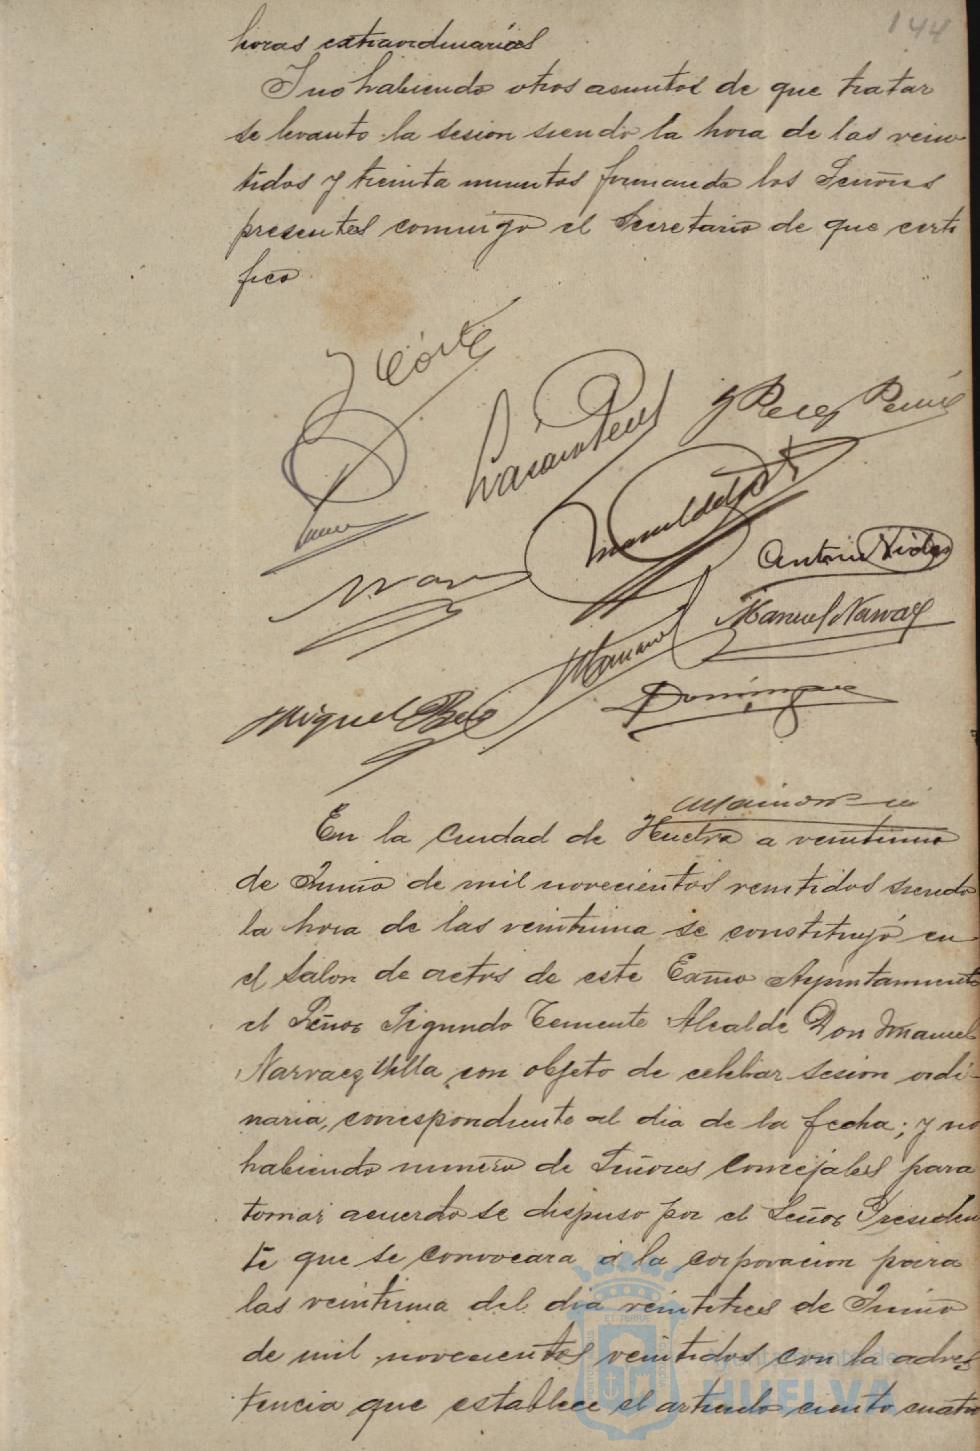 144
horas extraordinarias
Y no habiendo otros asuntos de que tratar
se levanto la sesion siendo la hora de las vein
tidos y treinta minutos firmando los Señores
presentes conmigo el Secretario de que certi
fico
J Córte
Lázaro Perez
J Perez
Manuel del
Antonio Vides
Manuel Narvaez
Mariano
Dominguez
Miguel
En la Ciudad de Huelva a veintiuno
de Junio de mil novecientos veintidos siendo
la hora de las veintiuna se constituyó en
el Salon de actos de este Excmo Ayuntamiento
el Señor Segundo Teniente Alcalde Don Manuel
Narvaez Villa con objeto de celebrar sesion ordi-
naria, correspondiente al dia de la fecha; y no
habiendo numero de Señores Concejales para
tomar acuerdo se dispuso por el Señor Presiden
te que se convocara á la corporacion para
las veintiuna del dia veintitres de Junio
de mil novecientos veintidos con la adver
tencia que establece el articulo ciento cuatro
Ayuntamiento de
HUELVA